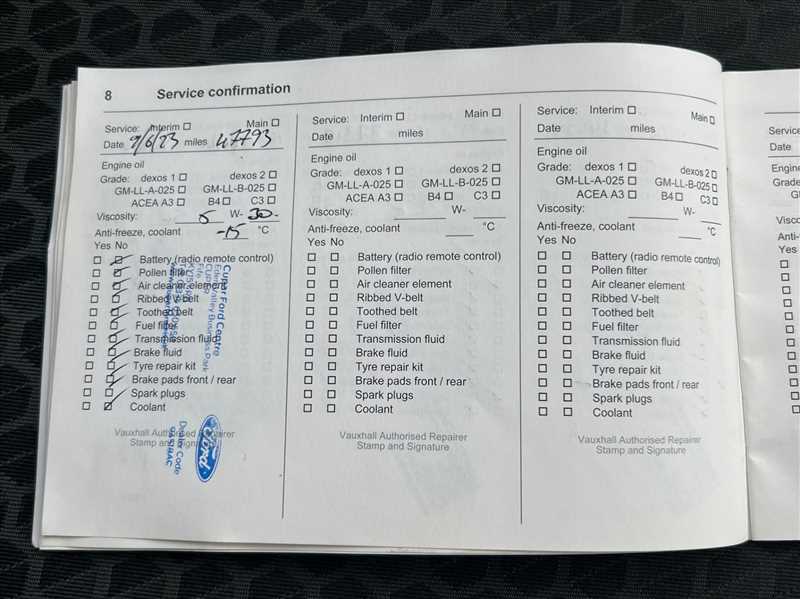 8 Service confirmation
Service: Interim Main
Date 9/6/23 miles 47793
Engine oil
Grade: dexos 1 dexos 2
GM-LL-A-025 GM-LL-B-025
ACEA A3 B4 C3
Viscosity: 5 W- 30
Anti-freeze, coolant -15 °C
Yes No
Battery (radio remote control)
Pollen filter
Air cleaner element
Ribbed V-belt
Toothed belt
Fuel filter
Transmission fluid
Brake fluid
Tyre repair kit
Brake pads front / rear
Spark plugs
Coolant
Vauxhall Authorised Repairer
Stamp and Signature
Cupar Ford Centre
Eden Valley Business Park
Cupar
Fife
Ford
Dealer Code
Service: Interim Main
Date miles
Engine oil
Grade: dexos 1 dexos 2
GM-LL-A-025 GM-LL-B-025
ACEA A3 B4 C3
Viscosity: W-
Anti-freeze, coolant °C
Yes No
Battery (radio remote control)
Pollen filter
Air cleaner element
Ribbed V-belt
Toothed belt
Fuel filter
Transmission fluid
Brake fluid
Tyre repair kit
Brake pads front / rear
Spark plugs
Coolant
Vauxhall Authorised Repairer
Stamp and Signature
Service: Interim Main
Date miles
Engine oil
Grade: dexos 1 dexos 2
GM-LL-A-025 GM-LL-B-025
ACEA A3 B4 C3
Viscosity: W-
Anti-freeze, coolant °C
Yes No
Battery (radio remote control)
Pollen filter
Air cleaner element
Ribbed V-belt
Toothed belt
Fuel filter
Transmission fluid
Brake fluid
Tyre repair kit
Brake pads front / rear
Spark plugs
Coolant
Vauxhall Authorised Repairer
Stamp and Signature
Date
Yes